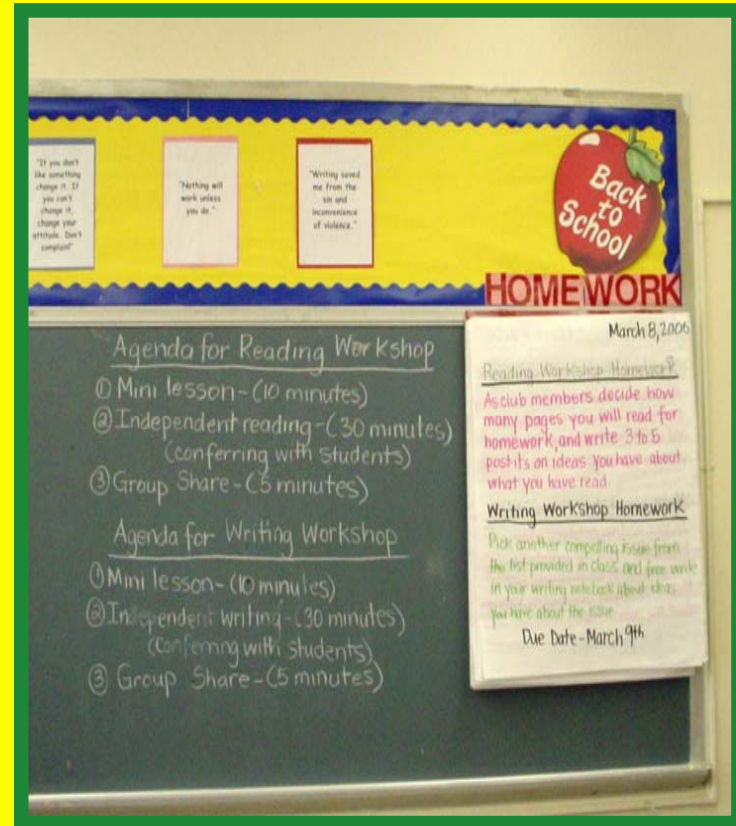 "If you don't
like something
change it. If
you can't
change it,
change your
attitude. Don't
complain"
"Nothing will
work unless
you do."
"Writing saved
me from the
sin and
inconvenience
of violence."
Back
to
School
HOMEWORK
Agenda for Reading Workshop
① Mini lesson - (10 minutes)
② Independent reading - (30 minutes)
(conferring with students)
③ Group Share - (5 minutes)
Agenda for Writing Workshop
① Mini lesson - (10 minutes)
② Independent writing - (30 minutes)
(conferring with students)
③ Group Share - (5 minutes)
March 8, 2006
Reading Workshop Homework
As club members decide how
many pages you will read for
homework, and write 3 to 5
post its on ideas you have about
what you have read.
Writing Workshop Homework
Pick another compelling issue from
the list provided in class and free write
in your writing notebook about ideas
you have about the issue
Due Date - March 9th